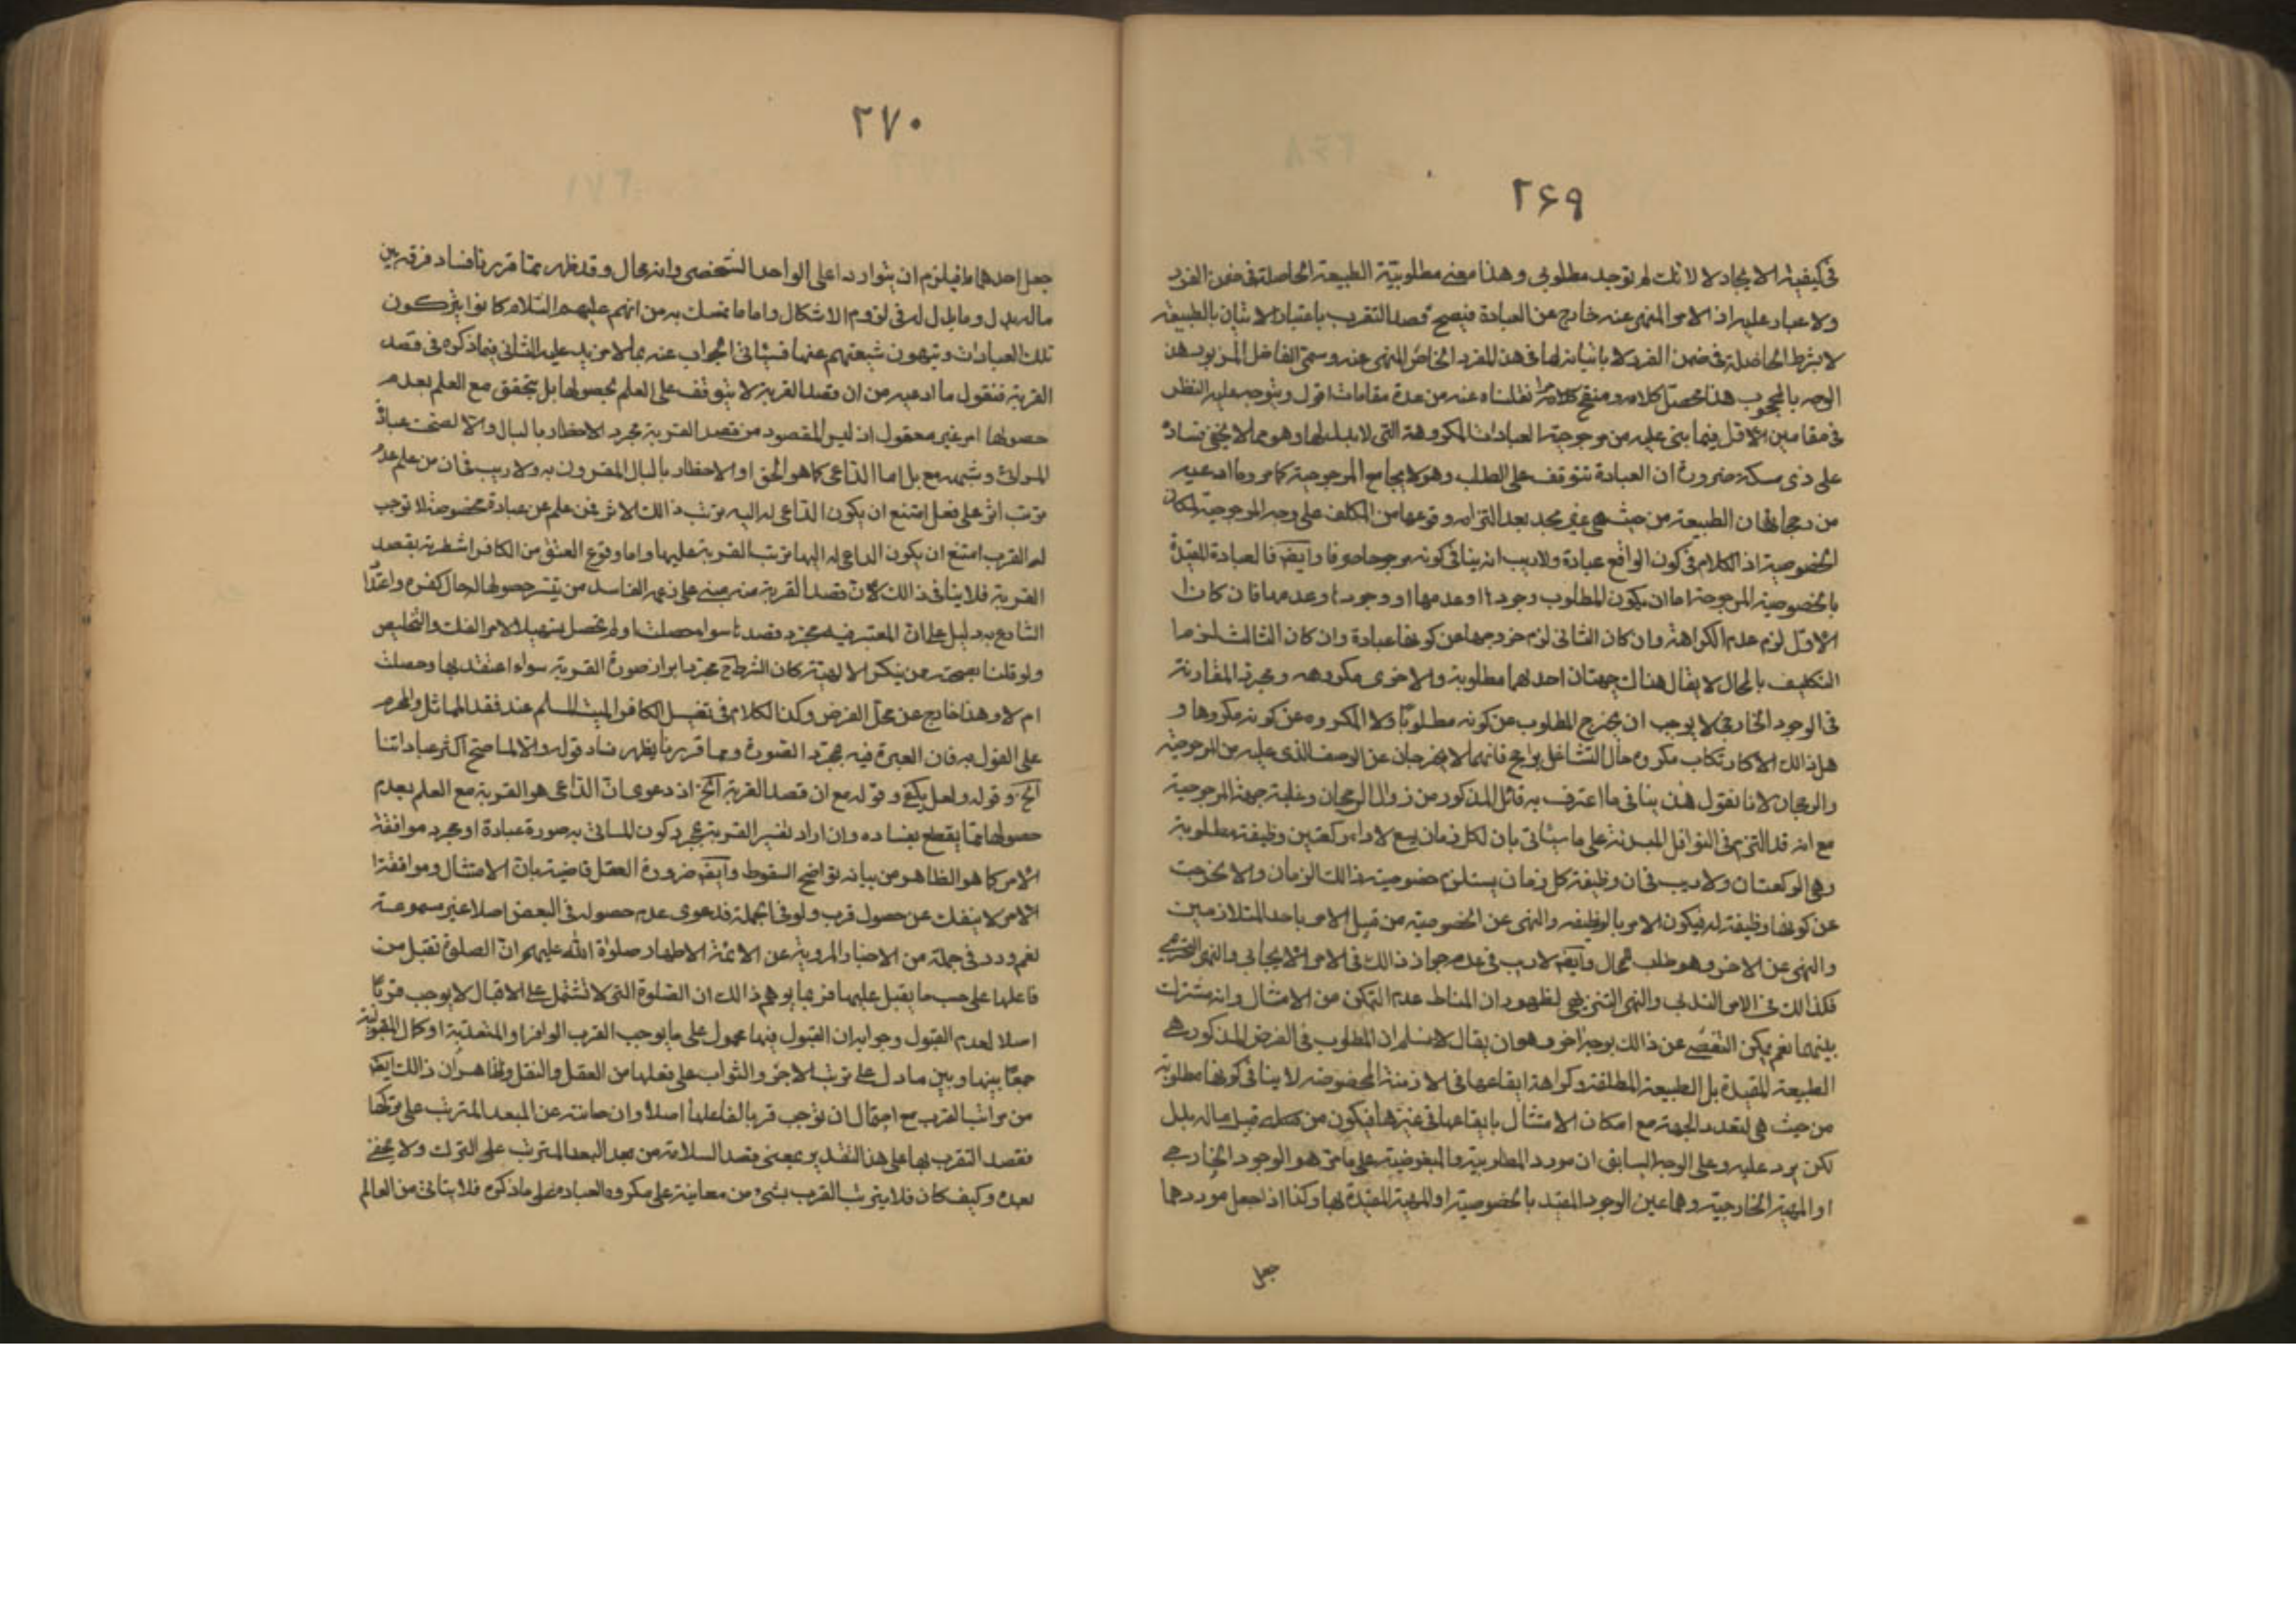 ٢۶٩
فى كيفية الايجاد لا لانك لم توجد مطلوبى وهذا معنى مطلوبية الطبيعة الحاصلة فى ضمن الفرد
ولا غبار عليه اذ الامر المنهى عنه خارج عن العبادة فيصح قصد التقرب باعتبار الاتيان بالطبيعة
لا بشرط الحاصلة فى ضمن الفرد لا باتيانه لها فى هذا الفرد الخاص المنهى عنه وسمى الفاضل المزبور هذا
الوجه بالمحبوب هذا محصل كلامه ومنقح مرامه نقلناه عنه من عدة مقامات اقول ويتوجه عليه النظر
فى مقامين الاول فيما بنى عليه من مرجوحية العبادات المكروهة التى لا بدل لها وهو مما لا يخفى فساده
على ذى مسكة ضرورة ان العبادة تتوقف على الطلب وهو لا يجامع المرجوحية كما مر وما ادعيه
من رجحانها من الطبيعة من حيث هى غير مجد بعد التزامه وقوعها من المكلف على وجه المرجوحية لمكان
الخصوصية اذ الكلام فى كون الواقع عبادة ولا ريب انه ينافى كونه مرجوحا وايضا فالعبادة المقيدة
بالخصوصية المرجوحة اما ان يكون المطلوب وجودها او عدمها او وجودها وعدمها فان كان
الاول لزم عدم الكراهة وان كان الثانى لزم خروجها عن كونها عبادة وان كان الثالث لزم
التكليف بالمحال لا يقال هناك جهتان احدهما مطلوبة والاخرى مكروهه ومجرد المقارنة
فى الوجود الخارجى لا يوجب ان يخرج المطلوب عن كونه مطلوبا ولا المكروه عن كونه مكروها و
هل ذالك الا كارتكاب مكروه حال التشاغل براجح فانهما لا يخرجان عن الوصف الذى عليه من المرجوحية
والرجحان لانا نقول هذا ينافى ما اعترف به قائل المذكور من زوال الرجحان وغلبة جهة المرجوحية
مع انه قد التزم فى النوافل المبتدئة على ما سياتى بان لكل زمان يسع لاداء ركعتين وظيفة مطلوبة
وهى الركعتان ولا ريب فى ان وظيفة كل زمان يستلزم خصوصية ذالك الزمان والا لخرجت
عن كونها وظيفة له فيكون الامر بالوظيفه والنهى عن الخصوصية من قبيل الامر باحد المتلازمين
والنهى عن الاخر وهو طلب محال وايضا لا ريب فى عدم جواز ذالك فى الامر الايجابى والنهى التحريمى
فكذالك فى الامر الندبى والنهى التنزيهى لظهور ان المناط عدم التمكن من الامتثال وانه مشترك
بينهما نعم يمكن التفصى عن ذالك بوجه اخر وهو ان يقال لا نسلم ان المطلوب فى الفرض المذكور هى
الطبيعة المقيدة بل الطبيعة المطلقة وكراهة ايقاعها فى الازمنة المخصوصة لا ينافى كونها مطلوبة
من حيث هى لتعدد الجهة مع امكان الامتثال بايقاعها فى غيرها فيكون من قبيل ماله بدل
لكن يرد عليه وعلى الوجه السابق ان مورد المطلوبية والمبغوضية على ما مر هو الوجود الخارجى
او المهية الخارجية وهما عين الوجود المقيد بالخصوصية او المهية المقيدة بها وكذا اذا جعل موردهما
جعل
٢٧٠
جعل احدهما فيلزم ان يتواردا على الواحد الشخصى وانه محال وقد ظهر مما قررنا فساد فرقه بين
ماله بدل وما لا بدل له فى لزوم الاشكال واما ما تمسك به من انهم عليهم السلام كانوا يتركون
تلك العبادات وينهون شيعتهم عنها فسياتى الجواب عنه بما لا مزيد عليه الثانى فيما ذكره فى قصد
القربة فنقول ما ادعيه من ان قصد القربة لا يتوقف على العلم بحصولها بل يتحقق مع العلم بعدم
حصولها امر غير معقول اذ ليس المقصود من قصد القربة مجرد الاخطار بالبال والا لصحت عبادة
المرائى وشبهه بل اما الداعى كما هو الحق او الاخطار بالبال المقرون به ولا ريب فى ان من علم عدم
ترتب اثر على فعل امتنع ان يكون الداعى له اليه ترتب ذالك الاثر فمن علم عن عبادة مخصوصة لا توجب
له القرب امتنع ان يكون الداعى له اليها ترتب القربة عليها واما وقوع العتق من الكافر اشطرية بقصد
القربة فلا ينافى ذالك لان قصد القربة منه مبنى على زعمه الفاسد من تيسر حصولها له حال كفره واعتداد
الشارع به دليل على ان المعتبر فيه مجرد قصدها سواء حصلت او لم تحصل تسهيلا لامر الفك والتخليص
ولو قلنا بصحته من ينكر الالهية كان الشرط ح مجرد ابراز صورة القربة سواء اعتقد بها وحصلت
ام لا وهذا خارج عن محل الفرض وكذا الكلام فى تغسيل الكافر الميت المسلم عند فقد المماثل والمحرم
على القول به فان العبرة فيه بمجرد الصورة ومما قررنا يظهر فساد قوله والا لما صح اكثر عباداتنا
آلخ وقوله ولعل يكفى وقوله مع ان قصد القربة آلخ اذ دعوى ان الداعى هو القربة مع العلم بعدم
حصولها مما يقطع بفساده وان اراد تفسير القربة بمجرد كون الماتى به صورة عبادة او مجرد موافقة
الامر كما هو الظاهر من بيانه فواضح السقوط وايضا ضرورة العقل قاضية بان الامتثال وموافقة
الامر لا ينفك عن حصول قرب ولو فى الجملة فدعوى عدم حصوله فى البعض اصلا غير مسموعة
نعم ورد فى جملة من الاخبار المروية عن الائمة الاطهار صلوة الله عليهم ان الصلوة تقبل من
فاعلها على حسب ما يقبل عليها فربما يوهم ذالك ان الصلوة التى لا تشتمل على الاقبال لا يوجب قربا
اصلا لعدم القبول وجوابه ان القبول فيها محمول على ما يوجب القرب الوافر او المتعدية او كمال المقبولية
جمعا بينها وبين ما دل على ترتب الاجر والثواب على فعلها من العقل والنقل والظاهر ان ذالك ايضا
من مراتب القرب مع احتمال ان لا توجب قربا لفاعلها اصلا وان صانته عن البعد المترتب على تركها
فقصد التقرب بها على هذا التقدير بمعنى قصد السلامة من بعد البعد المترتب على الترك ولا يخفى
بعده وكيف كان فلا يترتب القرب بشئ من معانيه على مكروه العباده على ما ذكره فلا يتاتى من العالم